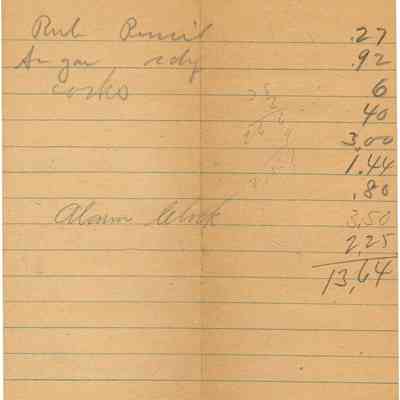 Rub Pencil .27
Sugar, .92
corks 6
40
3,00
1.44
.80
Alarm Clock 3,50
2,25
13,64